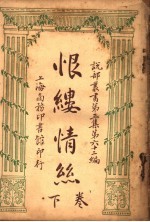 說部叢書第二集第六十二編
恨縷情絲
卷下
上海商務印書館印行